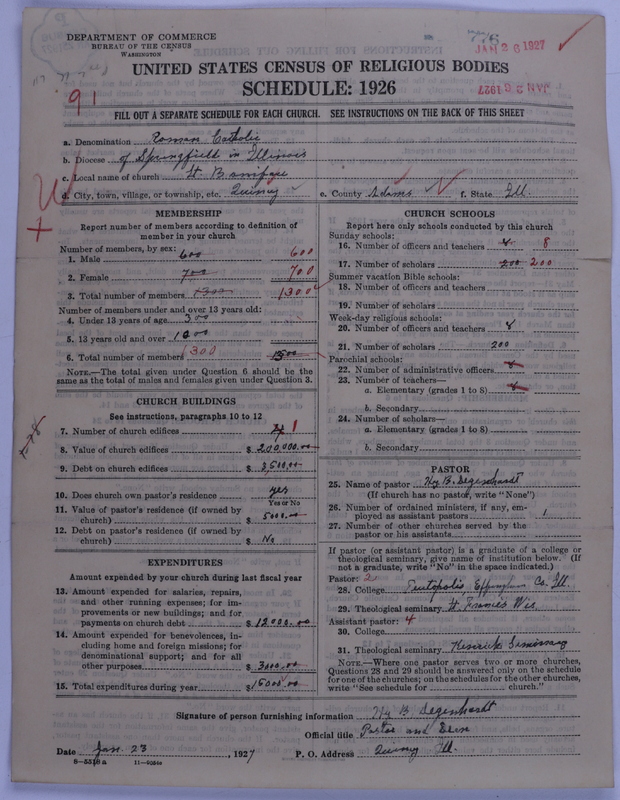 DEPARTMENT OF COMMERCE
BUREAU OF THE CENSUS
WASHINGTON
776
JAN 26 1927
JAN 26 1927
UNITED STATES CENSUS OF RELIGIOUS BODIES
SCHEDULE: 1926
91
FILL OUT A SEPARATE SCHEDULE FOR EACH CHURCH. SEE INSTRUCTIONS ON THE BACK OF THIS SHEET
a. Denomination Roman Catholic
b. Diocese of Springfield in Illinois
c. Local name of church St. Boniface
d. City, town, village, or township, etc. Quincy e. County Adams f. State Ill.
MEMBERSHIP
Report number of members according to definition of
member in your church
Number of members, by sex:
1. Male 600 600
2. Female 700 700
3. Total number of members 1300 1300
Number of members under and over 13 years old:
4. Under 13 years of age 300
5. 13 years old and over 1200
6. Total number of members 1300 1500
NOTE.—The total given under Question 6 should be
same as the total of males and females given under Question 3.
CHURCH BUILDINGS
See instructions, paragraphs 10 to 12
7. Number of church edifices 1
8. Value of church edifices $ 200,000.00
9. Debt on church edifices $ 8,500.00
10. Does church own pastor's residence yes
Yes or No
11. Value of pastor's residence (if owned by
church) $ 5000.00
12. Debt on pastor's residence (if owned by
church) $ No
EXPENDITURES
Amount expended by your church during last fiscal year
13. Amount expended for salaries, repairs,
and other running expenses; for im-
provements or new buildings; and for
payments on church debt $ 12000.00
14. Amount expended for benevolences, in-
cluding home and foreign missions; for
denominational support; and for all
other purposes $ 3000.00
15. Total expenditures during year $ 15000.00
CHURCH SCHOOLS
Report here only schools conducted by this church
Sunday schools:
16. Number of officers and teachers 8 8
17. Number of scholars 200 200
Summer vacation Bible schools:
18. Number of officers and teachers
19. Number of scholars
Week-day religious schools:
20. Number of officers and teachers 8
21. Number of scholars 200
Parochial schools:
22. Number of administrative officers 8
23. Number of teachers—
a. Elementary (grades 1 to 8) 8
b. Secondary
24. Number of scholars—
a. Elementary (grades 1 to 8)
b. Secondary
PASTOR
25. Name of pastor Hy B. Degenhardt
(If church has no pastor, write "None")
26. Number of ordained ministers, if any, em-
ployed as assistant pastors 1
27. Number of other churches served by the
pastor or his assistants
If pastor (or assistant pastor) is a graduate of a college or
theological seminary, give name of institution below. (If
not a graduate, write "No" in the space indicated.)
Pastor: 2
28. College Teutopolis Effingham Co. Ill.
29. Theological seminary St. Francis Wis
Assistant pastor: 4
30. College
31. Theological seminary Kenrick Seminary
NOTE.—Where one pastor serves two or more churches,
Questions 28 and 29 should be answered only on the schedule
for one of the churches; on the schedules for the other churches,
write "See schedule for church."
Signature of person furnishing information Hy B Degenhardt
Official title Pastor and Dean
Date Jan. 23, 1927 P. O. Address Quincy Ill.
8—5518 a 11—90844